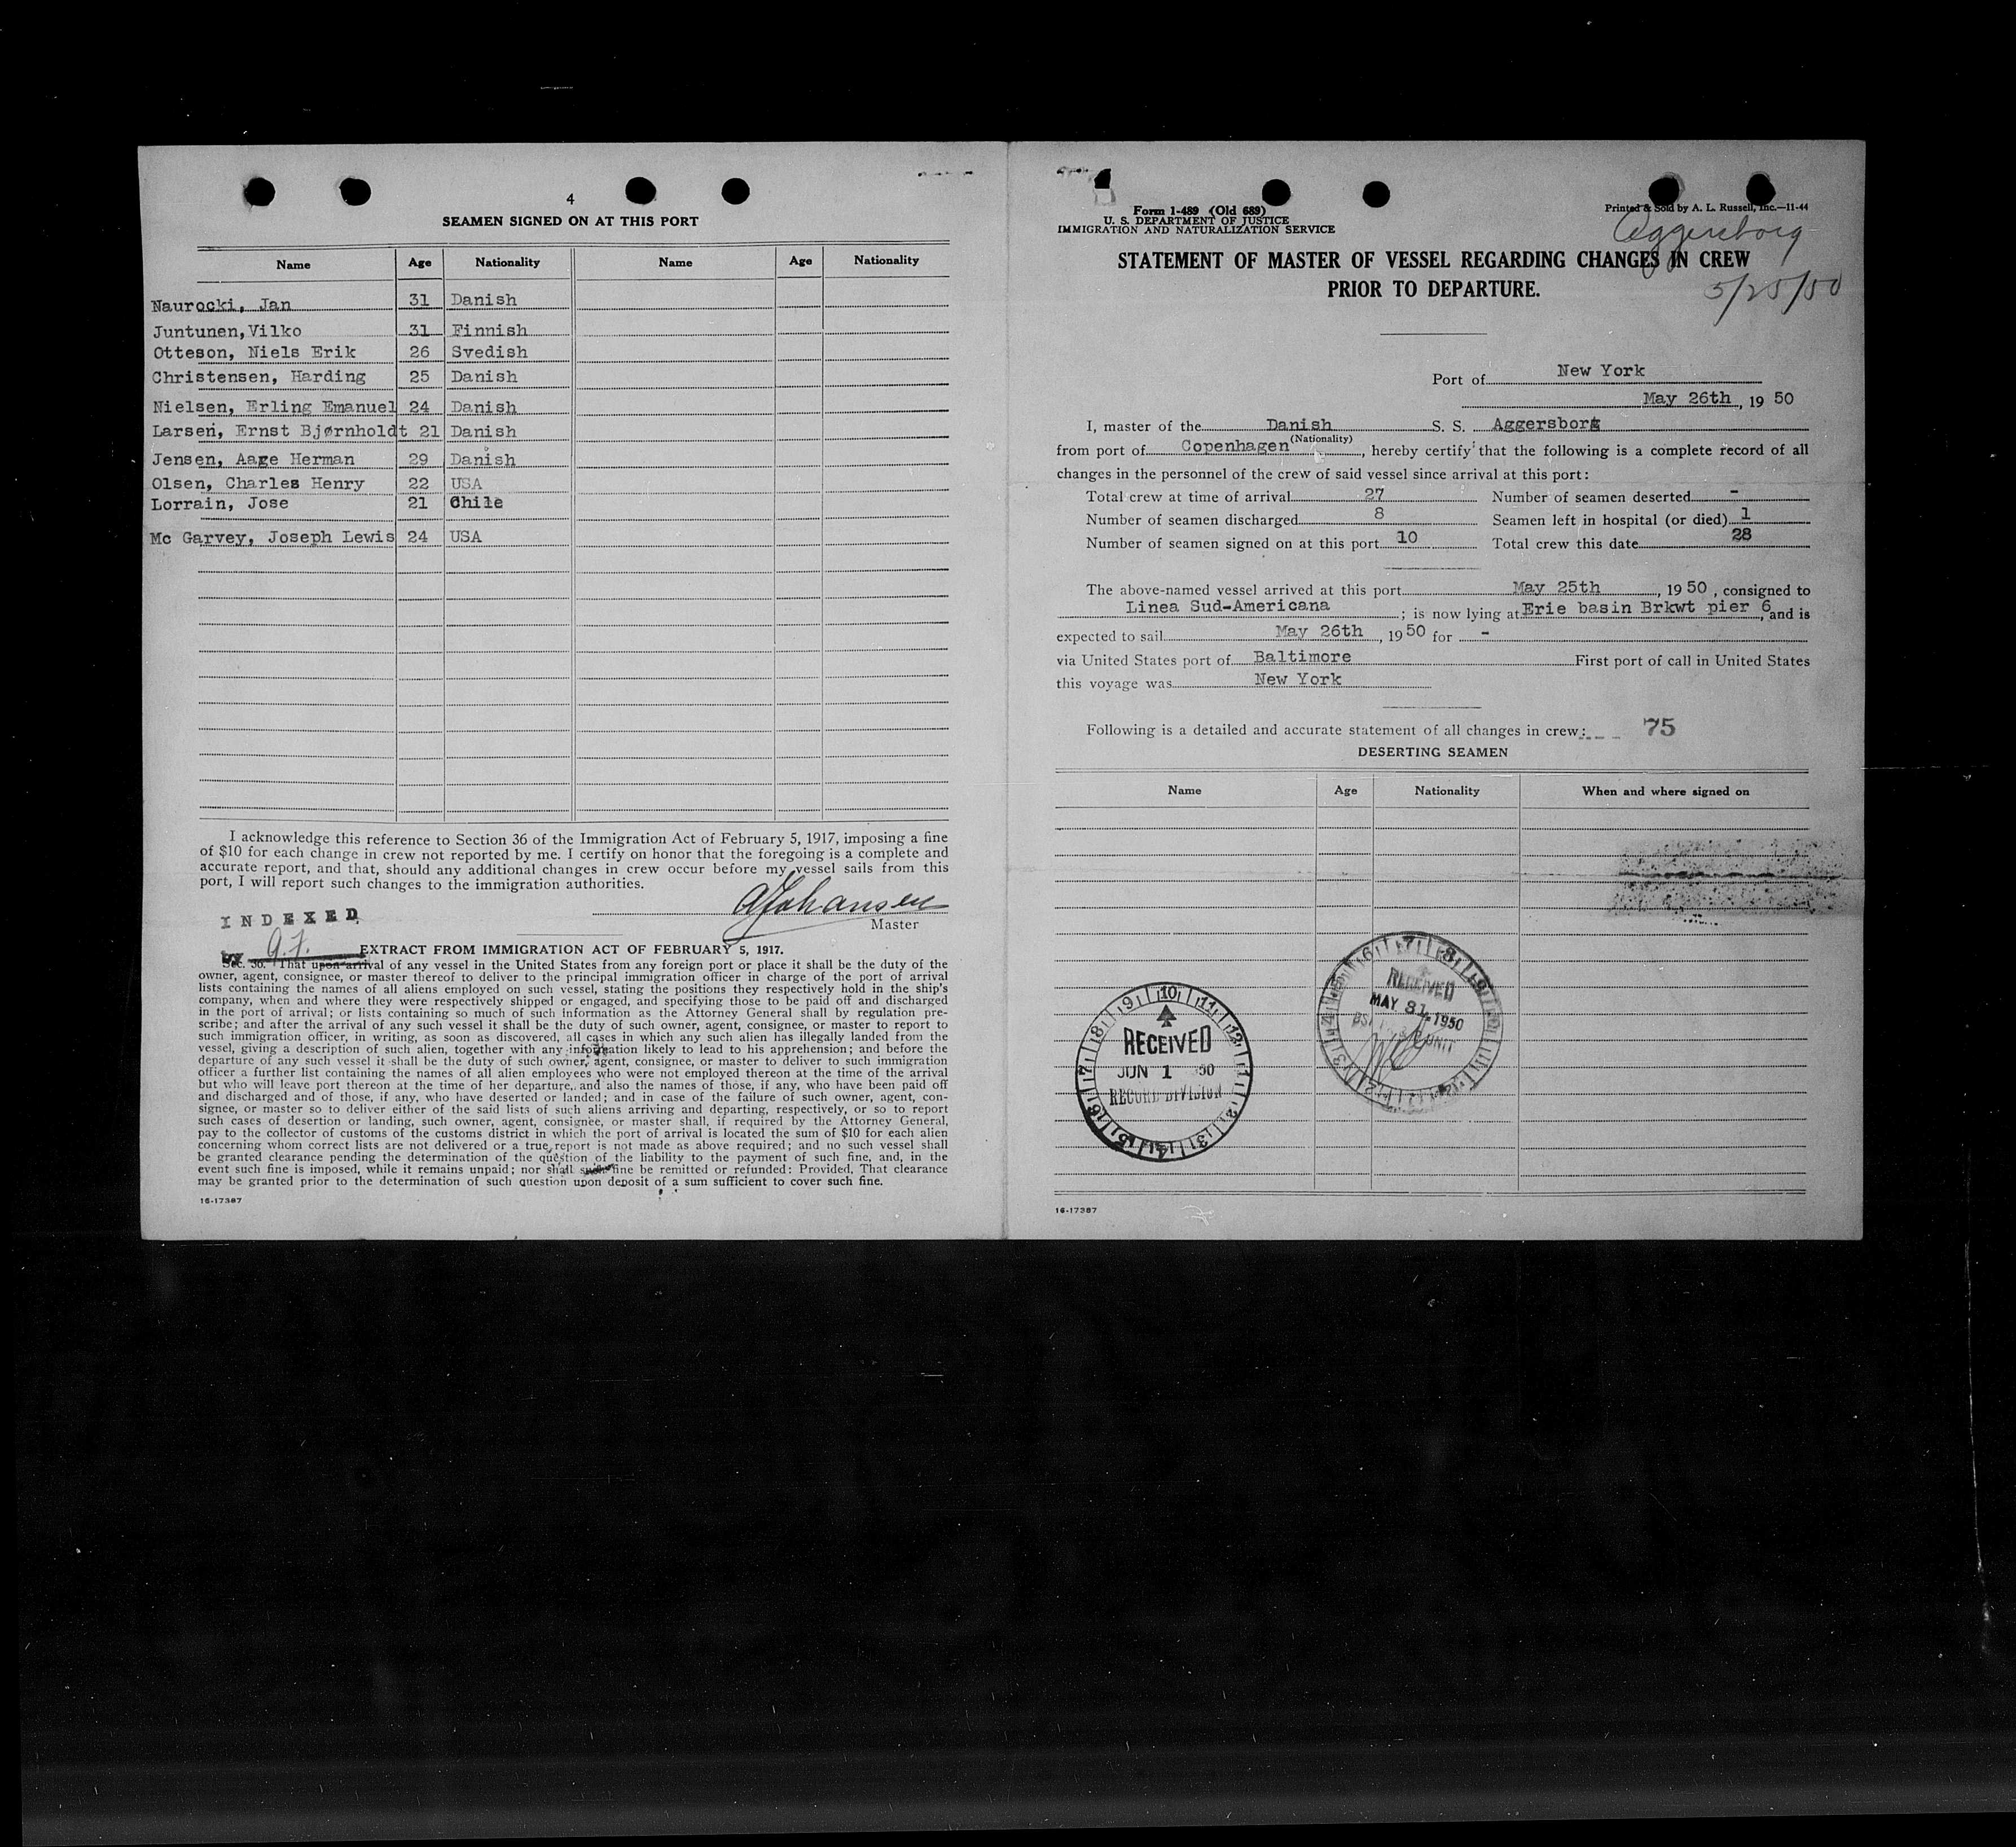 4
SEAMEN SIGNED ON AT THIS PORT
Name Age Nationality Name Age Nationality
Naurocki, Jan 31 Danish
Juntunen, Vilko 31 Finnish
Otteson, Niels Erik 26 Svedish
Christensen, Harding 25 Danish
Nielsen, Erling Emanuel 24 Danish
Larsen, Ernst Bjørnholdt 21 Danish
Jensen, Aage Herman 29 Danish
Olsen, Charles Henry 22 USA
Lorrain, Jose 21 Chile
Mc Garvey, Joseph Lewis 24 USA
I acknowledge this reference to Section 36 of the Immigration Act of February 5, 1917, imposing a fine
of $10 for each change in crew not reported by me. I certify on honor that the foregoing is a complete and
accurate report, and that, should any additional changes in crew occur before my vessel sails from this
port, I will report such changes to the immigration authorities.
AJohansen
Master
INDEXED
EXTRACT FROM IMMIGRATION ACT OF FEBRUARY 5, 1917.
Sec. 36. That upon arrival of any vessel in the United States from any foreign port or place it shall be the duty of the
owner, agent, consignee, or master thereof to deliver to the principal immigration officer in charge of the port of arrival
lists containing the names of all aliens employed on such vessel, stating the positions they respectively hold in the ship's
company, when and where they were respectively shipped or engaged, and specifying those to be paid off and discharged
in the port of arrival; or lists containing so much of such information as the Attorney General shall by regulation pre-
scribe; and after the arrival of any such vessel it shall be the duty of such owner, agent, consignee, or master to report to
such immigration officer, in writing, as soon as discovered, all cases in which any such alien has illegally landed from the
vessel, giving a description of such alien, together with any information likely to lead to his apprehension; and before the
departure of any such vessel it shall be the duty of such owner, agent, consignee, or master to deliver to such immigration
officer a further list containing the names of all alien employees who were not employed thereon at the time of the arrival
but who will leave port thereon at the time of her departure, and also the names of those, if any, who have been paid off
and discharged and of those, if any, who have deserted or landed; and in case of the failure of such owner, agent, con-
signee, or master so to deliver either of the said lists of such aliens arriving and departing, respectively, or so to report
such cases of desertion or landing, such owner, agent, consignee, or master shall, if required by the Attorney General,
pay to the collector of customs of the customs district in which the port of arrival is located the sum of $10 for each alien
concerning whom correct lists are not delivered or a true report is not made as above required; and no such vessel shall
be granted clearance pending the determination of the question of the liability to the payment of such fine, and, in the
event such fine is imposed, while it remains unpaid; nor shall such fine be remitted or refunded: Provided, That clearance
may be granted prior to the determination of such question upon deposit of a sum sufficient to cover such fine.
16-17387
Form 1-489 (Old 689)
U. S. DEPARTMENT OF JUSTICE
IMMIGRATION AND NATURALIZATION SERVICE
Printed & Sold by A. L. Russell, Inc.—11-44
Aggersborg
5/25/50
STATEMENT OF MASTER OF VESSEL REGARDING CHANGES IN CREW
PRIOR TO DEPARTURE.
Port of New York
May 26th, 19 50
I, master of the Danish S. S. Aggersborg
(Nationality)
from port of Copenhagen, hereby certify that the following is a complete record of all
changes in the personnel of the crew of said vessel since arrival at this port:
Total crew at time of arrival 27 Number of seamen deserted -
Number of seamen discharged 8 Seamen left in hospital (or died) 1
Number of seamen signed on at this port 10 Total crew this date 28
The above-named vessel arrived at this port May 25th, 19 50, consigned to
Linea Sud-Americana; is now lying at Erie basin Brkwt pier 6, and is
expected to sail May 26th, 19 50 for -
via United States port of Baltimore First port of call in United States
this voyage was New York
Following is a detailed and accurate statement of all changes in crew: 75
DESERTING SEAMEN
Name Age Nationality When and where signed on
RECEIVED
MAY 31 1950
UNIT
RECEIVED
JUN 1 50
RECORD DIVISION
16-17387